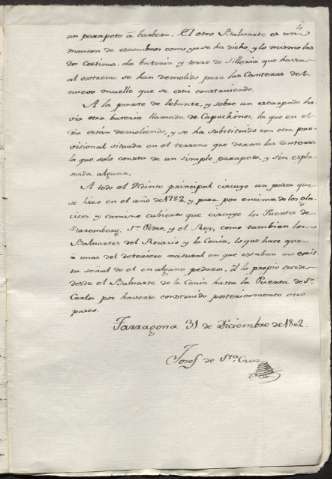 4
un parapeto à barbeta. El otro Baluarte es un
monton de escombros como ya se ha dicho, y lo mismo las
dos Cortinas. La bateria y torre de Silleria que havia
al estremo se han demolido para las Canteras del
nuevo muelle que se está construiendo.
A la parte de lebante, y sobre un escarpado ha
via otra bateria llamada de Capuchinos la que en el
dia están demoliendo, y se ha substituido con otra pro-
visional situada en el terreno que dexan las canteras
la que solo consta de un simple parapeto, y sin espla-
nada alguna.
A todo el Recinto principal circuye un paseo que
se hizo en el año de 1782 y pasa por encima de los gla-
cices y camino cubierto que circuye los Fuertes de
Staremberg, Sn. Pedro, y el Rey, como tambien los
Baluartes del Rosario y la Cenia, lo que hace que
à mas del deterioro natural en que estaban no exis
ta señal de el en algunos pedazos, y lo propio sucede
desde el Baluarte de la Cenia hasta la Puerta de Sn.
Carlos por haverse construido posteriormente otro
paseo.
Tarragona 31 de Diciembre de 1802.
Josef de Sta. Cruz